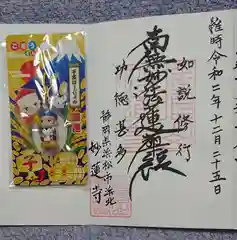 維時令和二年十二月二十五日
如説修行
南無妙法蓮華経
功徳甚多
静岡県浜松市浜北
妙蓮寺
子